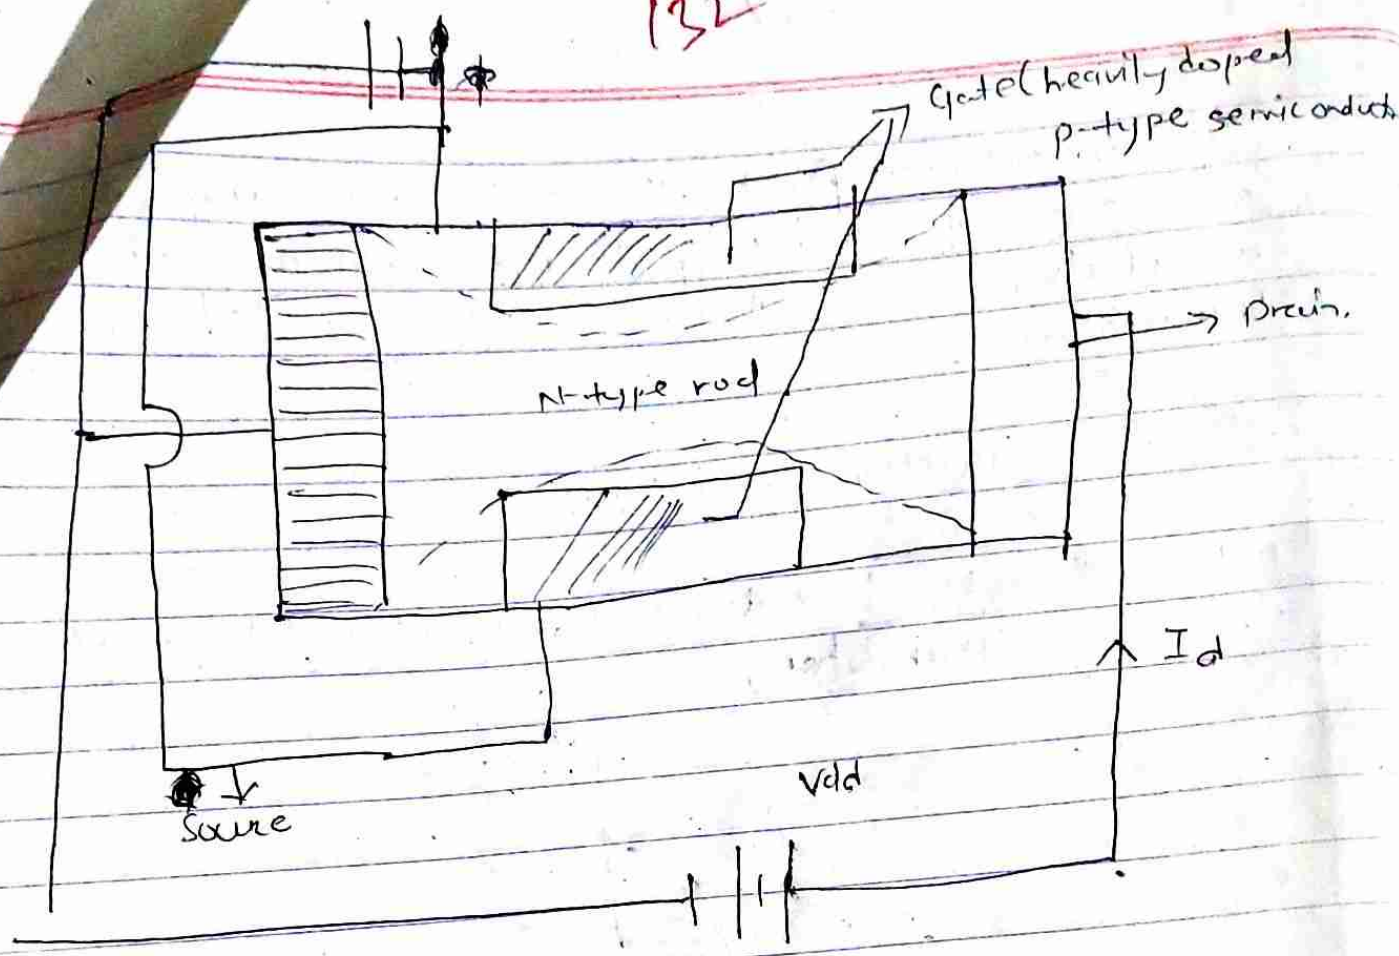 132
Gate (heavily doped
p-type semiconducts
Drain.
N-type rod
Id
Vdd
Sourse